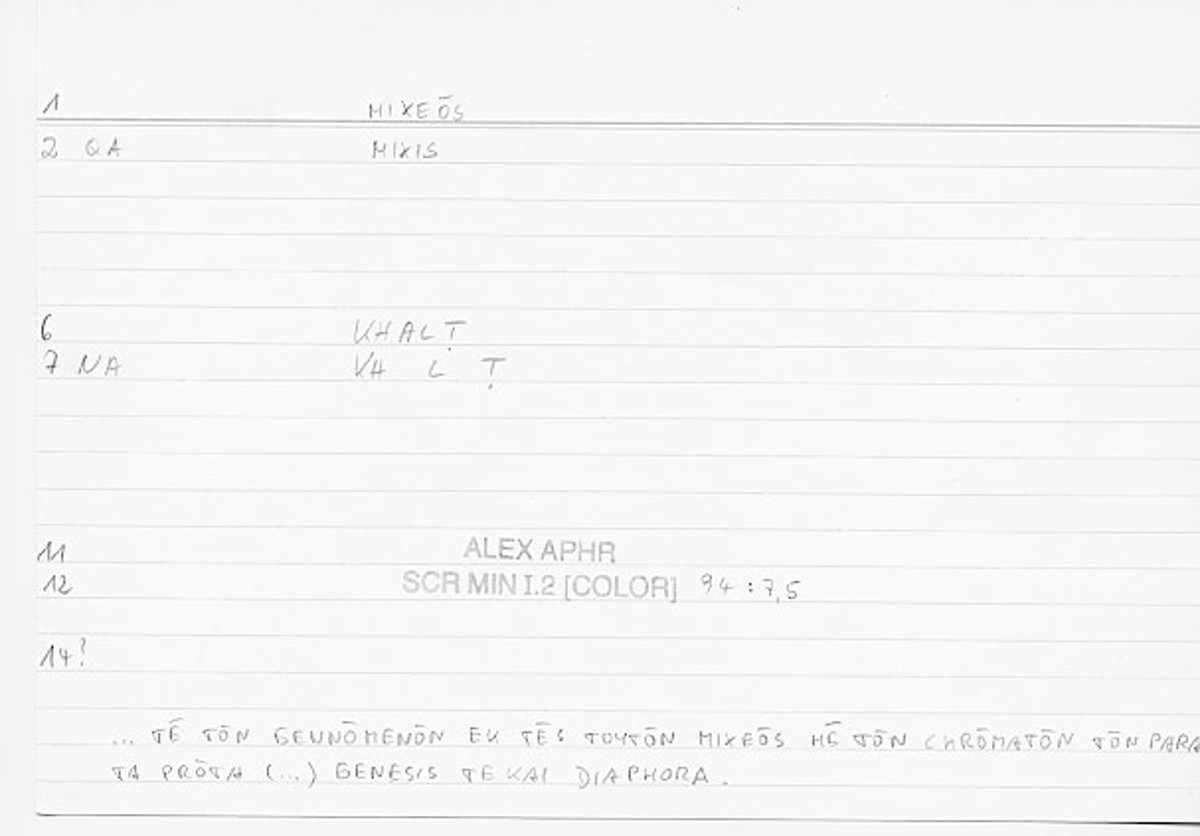 1 MIXEŌS
2 QA MIXIS
6 KHALṬ
7 NA KH L Ṭ
11 ALEX APHR
12 SCR MIN I.2 [COLOR] 94:7,5
14?
... TĒ TŌN GENNŌMENŌN EK TĒS TOYTŌN MIXEŌS HĒ TŌN CHRŌMATŌN TŌN PARA
TA PRŌTA (...) GENESIS TE KAI DIAPHORA.